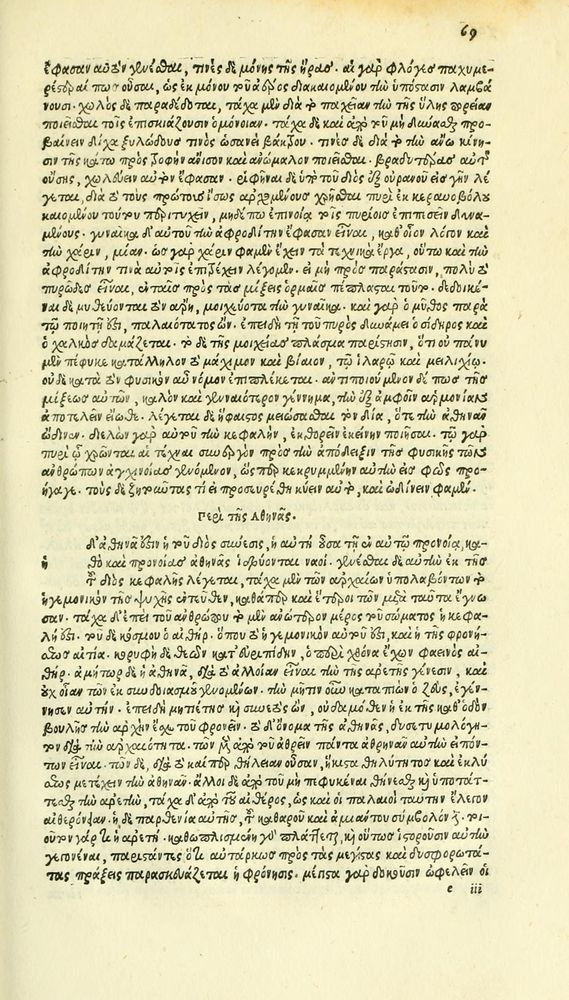 69
ἔφασαν αὐτὸν γενέσθαι, τινὲς δὲ μόνης τῆς ἥρας· αἱ γὰρ φλόγες παχυμε-
ρέστεραί πως οὖσαι, ὡς ἐκ μόνου τοῦ ἀέρος διακαιομένου τὴν ὑπόστασιν λαμβά
νουσι· χωλὸς δὲ παραδέδοται, τάχα μὲν διὰ τὸ παχεῖαν τὴν τῆς ὕλης πορείαν
ποιεῖσθαι τοῖς ἐπισκιάζουσιν ὁμοίαν· τάχα δὲ καὶ ἀπὸ τοῦ μὴ δύνασθαι προ-
βαίνειν δίχα ξυλώδους τινὸς ὡσανεὶ βάκτρου· τινὲς δὲ διὰ τὸ τὴν ἄνω κίνη-
σιν τῆς κάτω πρὸς τροφὴν ἄνισον καὶ ἀνώμαλον ποιεῖσθαι· βραδυτέρας αὐτῆς
οὔσης, χωλεύειν αὐτὸν ἔφασαν· ῥιφῆναι δὲ ὑπὸ τοῦ διὸς ἐξ οὐρανοῦ εἰς γῆν λέ
γεται, διὰ τὸ τοὺς πρώτους ἴσως ἀρξαμένους χρῆσθαι πυρὶ ἐκ κεραυνοβόλου
καιομένου τούτου περιτυχεῖν, μηδέπω ἐπινοίᾳ τοῖς πυρίοις ἐπιπεσεῖν δυνα-
μένους· γυναῖκα δ' αὐτοῦ τὴν ἀφροδίτην ἔφασαν εἶναι, καθ' οἷον λόγον καὶ
τὴν χάριν, μίαν· ὡς γὰρ χάριν φαμὲν ἔχειν τὰ τεχνικὰ ἔργα, οὕτω καὶ τὴν
ἀφροδίτην τινὰ αὐτοῖς ἐπιτρέχειν λέγομεν· εἰ μὴ πρὸς παράστασιν, πολὺ τὸ
πυρῶδες εἶναι, ἐν ταῖς πρὸς τὰς μίξεις ὁρμαῖς πέπλασται τοῦτο· δεδεκέ-
ναι δὲ μυθεύονται τὸν ἄρη, μοιχεύοντα τὴν γυναῖκα· καὶ γὰρ ὁ μῦθος παρὰ
τῷ ποιητῇ ἐστι, παλαιότατος ὤν· ἐπειδὴ τῇ τοῦ πυρὸς δυνάμει ὁ σίδηρος καὶ
ὁ χαλκὸς δαμάζεται· τὸ δὲ τῆς μοιχείας πλάσμα παρίστησιν, ὅτι οὐ πάνυ
μὲν πέφυκε κατάλληλον τὸ μάχιμον καὶ βίαιον, τῷ ἱλαρῷ καὶ μειλιχίῳ·
οὐδὲ κατὰ τὸν φυσικὸν αὐτοῦ νόμον ἐπιπλέκεται· ἀντιποιούμενον δέ πως τῆς
μίξεως αὐτῶν, καλὸν καὶ γενναιότερον γέννημα, τὴν ἐξ ἀμφοῖν ἁρμονίαν
ἀποτελεῖν εἴωθε· λέγεται δὲ ἥφαιστος μαιώσασθαι τὸν δία, ὅτε τὴν ἀθηνᾶν
ὤδινεν· διελὼν γὰρ αὐτοῦ τὴν κεφαλὴν, ἐκθορεῖν ἐκείνην ποιῆσαι· τῷ γὰρ
πυρὶ ᾧ χρῶνται αἱ τέχναι συνεργὸν πρὸς τὴν ἀπόδειξιν τῆς φυσικῆς τῶν
ἀνθρώπων ἀγχινοίας γενόμενον, ὥσπερ κεκρυμμένην αὐτὴν εἰς φῶς προ-
ήγαγε· τοὺς δὲ ζητοῦντάς τι εἰ προσευρέσθη κύειν αὐτὸ, καὶ ὠδίνειν φαμέν.
Περὶ τῆς Ἀθηνᾶς.
η
δ' ἀθηνᾶ ἐστιν ἡ τοῦ διὸς σύνεσις, ἡ αὐτὴ οὖσα τῇ ἐν αὐτῷ προνοίᾳ, κα-
θὸ καὶ προνοίας ἀθηνᾶς ἱδρύονται ναοί· γενέσθαι δὲ αὐτὴν ἐκ τῆς
τοῦ διὸς κεφαλῆς λέγεται, τάχα μὲν τῶν ἀρχαίων ὑπολαβόντων τὸ
ἡγεμονικὸν τῆς ψυχῆς ἐντεῦθεν, καθάπερ καὶ ἕτεροι τῶν μετὰ ταῦτα ἔγνω
σαν· τάχα δ' ἐπεὶ τοῦ ἀνθρώπου τὸ μὲν ἀνώτερον μέρος τοῦ σώματος ἡ κεφα-
λή ἐστι· τοῦ δὲ κόσμου ὁ αἰθὴρ· ὅπου τὸ ἡγεμονικὸν αὐτοῦ ἐστι, καὶ ἡ τῆς φρονή-
σεως αἰτία· κορυφὴ δὲ θεῶν κατ' εὐριπίδην, ὁ περὶ χθόνα ἔχων φαεινὸς αἰ-
θήρ· ἀμήτωρ δὲ ἡ ἀθηνᾶ, διὰ τὸ ἀλλοίαν εἶναι τὴν τῆς ἀρετῆς γένεσιν, καὶ
οὐχ οἵαν τῶν ἐκ συνδυασμοῦ γενομένων· τὴν μῆτιν οὖν καταπιὼν ὁ ζεὺς, ἐγέν-
νησεν αὐτήν· ἐπειδὴ μητιέτης καὶ συνετὸς ὢν, οὐδαμόθεν ἢ ἐκ τῆς καθ' ὁδὸν
βουλῆς τὴν ἀρχὴν ἔσχε τοῦ φρονεῖν· τὸ δ' ὄνομα τῆς ἀθηνᾶς, δυσετυμολόγη-
τον διὰ τὴν ἀρχαιότητα· τῶν μὲν ἀπὸ τοῦ ἀθρεῖν πάντα ἀθρηνᾶν αὐτὴν εἰπόν-
των εἶναι· τῶν δὲ, διὰ τὸ καίπερ θήλειαν οὖσαν, ἥκιστα θηλύτητος καὶ ἐκλύ
σεως μετέχειν τὴν ἀθηνᾶν· ἄλλοι δὲ ἀπὸ τοῦ μὴ πεφυκέναι θήνεσθαι καὶ ὑποτάτ-
τεσθαι τὴν ἀρετὴν, τάχα δ' ἀπὸ τοῦ αἰθέρος, ὡς καὶ οἱ παλαιοὶ ταύτην ἔλεγον
αἰθερόναιαν· ἡ δὲ παρθενία αὐτῆς, τοῦ καθαροῦ καὶ ἀμιάντου σύμβολόν ἐστι· τοι-
οῦτον γὰρ καὶ ἡ ἀρετή· καθωπλισμένη δὲ πλάττεται, καὶ οὕτως ἱστοροῦσιν αὐτὴν
γεγονέναι, παριστάντες ὅτι αὐτάρκως πρὸς τὰς μεγίστας καὶ δυσφορωτά-
τας πράξεις παρασκευάζεται ἡ φρόνησις· μέγιστα γὰρ δοκοῦσιν ὠφελεῖν οἱ
e iii